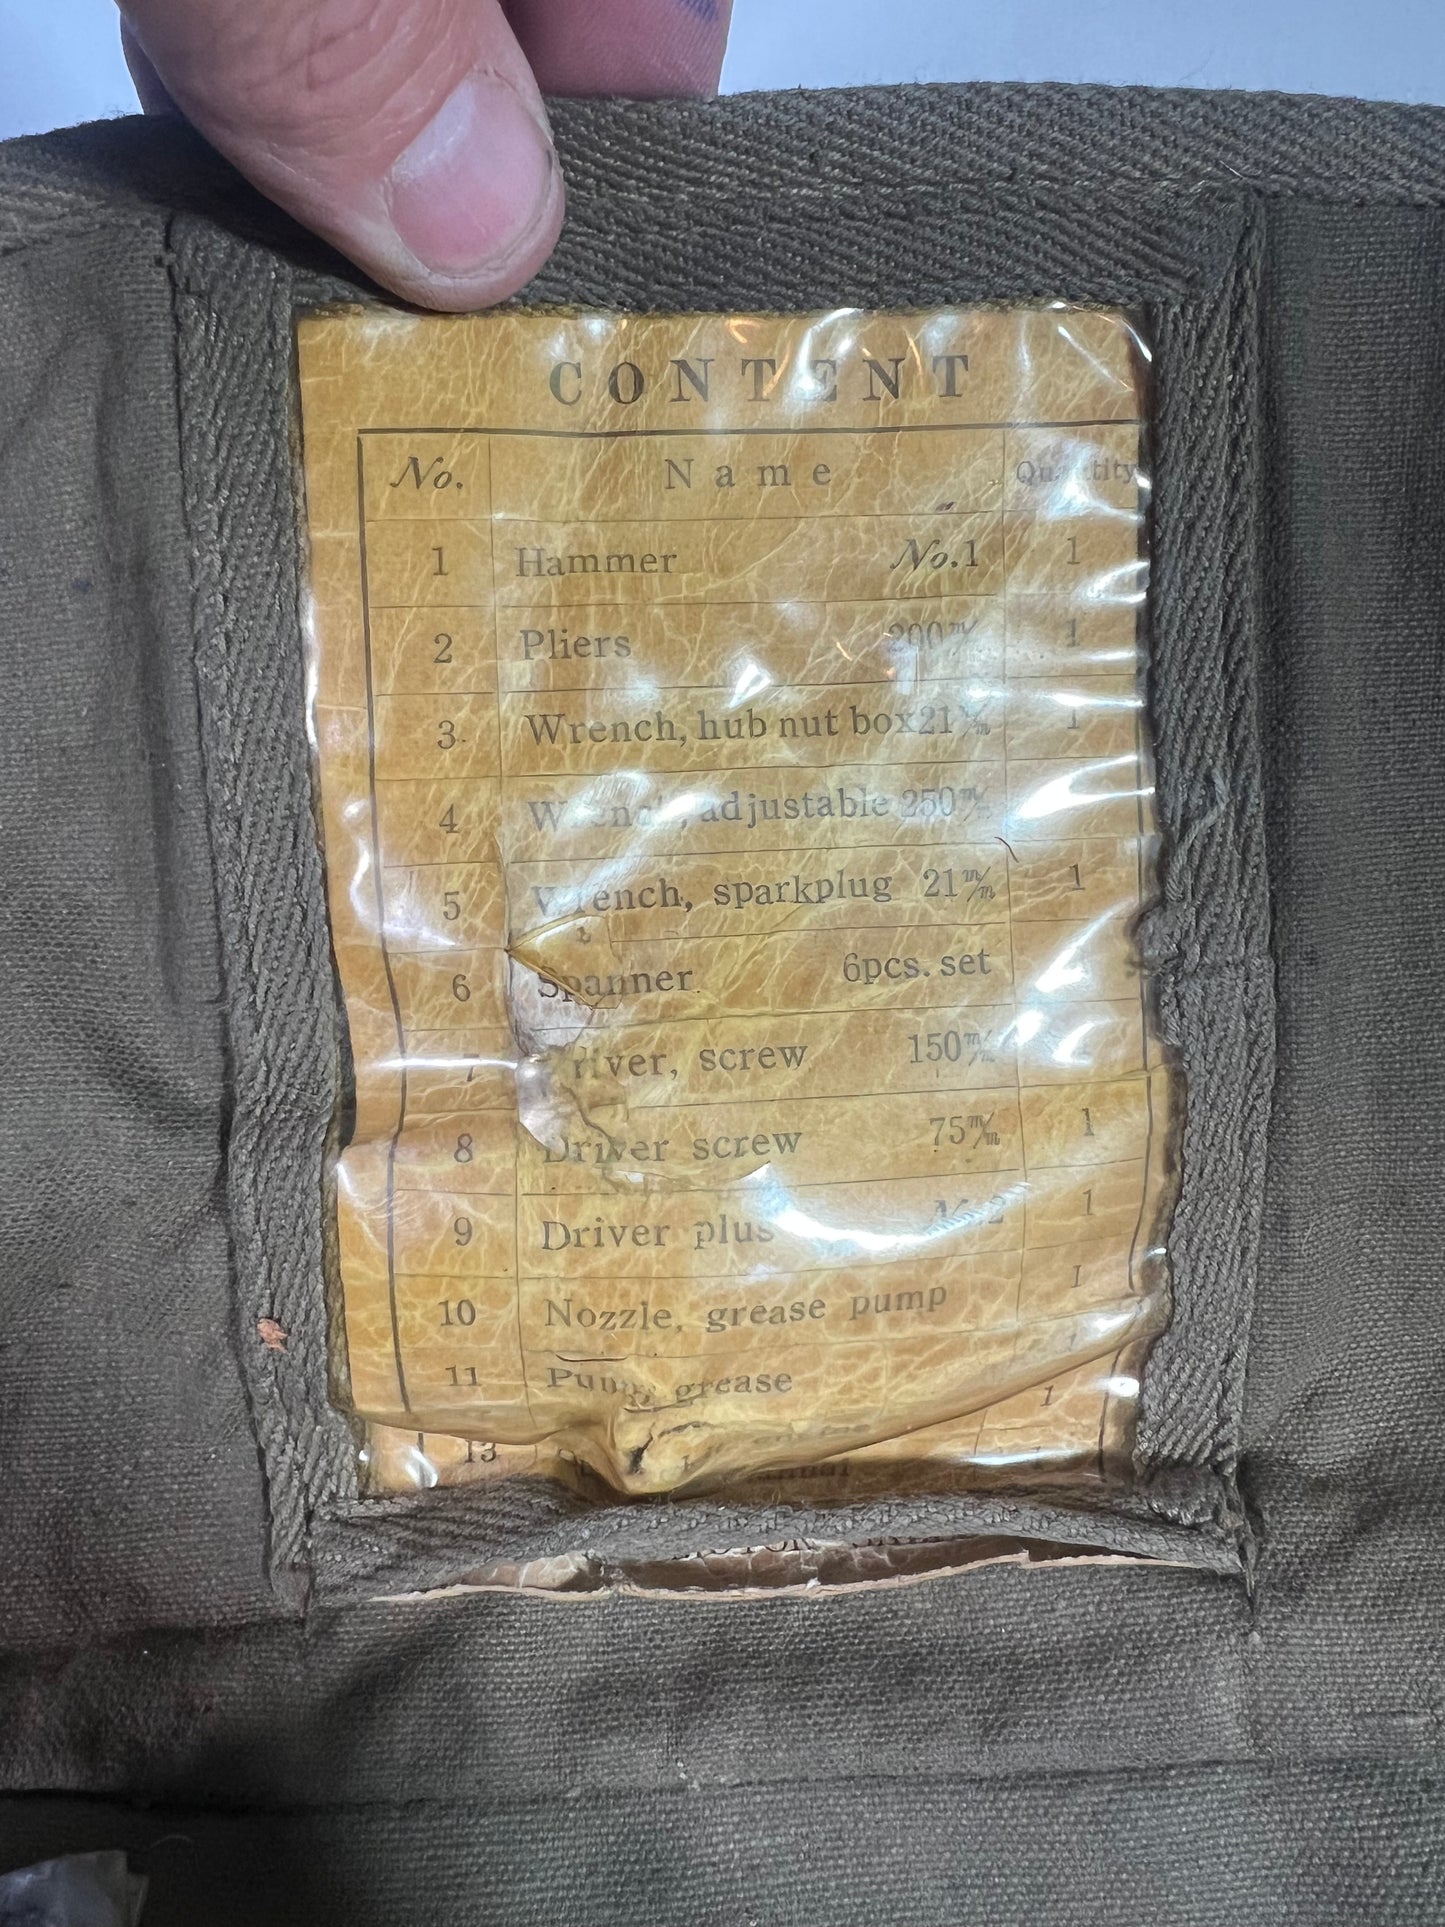 CONTENT
No. Name Quantity
1 Hammer No.1 1
2 Pliers 200 m/m 1
3. Wrench, hub nut box 21 m/m 1
4 Wrench, adjustable 250 m/m
5 Wrench, sparkplug 21 m/m 1
6 Spanner 6pcs. set
7 Driver, screw 150 m/m
8 Driver screw 75 m/m 1
9 Driver plus No.2 1
10 Nozzle, grease pump 1
11 Pump, grease 1
1
13